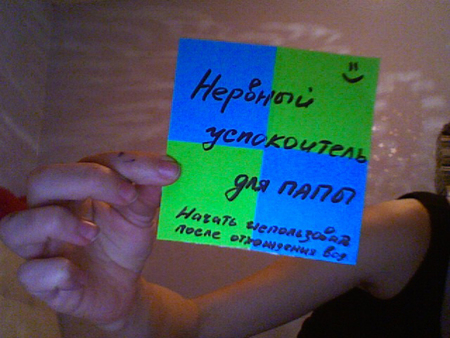 Нервный
успокоитель
для ПАПЫ
Начать использоват
после отхождения вод